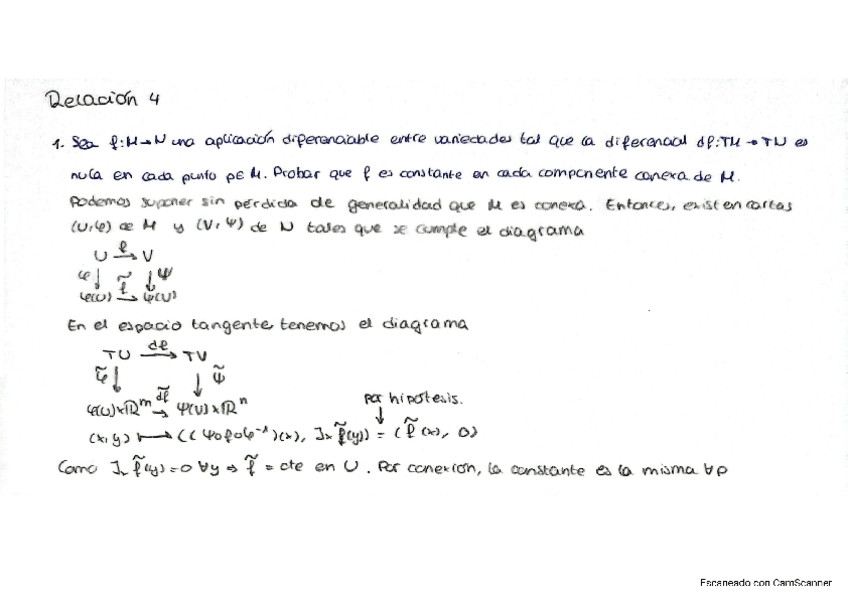 Relación 4
1. Sea f: M → N una aplicación diferenciable entre variedades tal que la diferencial df: TM → TN es
nula en cada punto p ∈ M. Probar que f es constante en cada componente conexa de M.
Podemos suponer sin pérdida de generalidad que M es conexa. Entonces, existen cartas
(U, φ) de M y (V, Ψ) de N tales que se cumple el diagrama
U →f V
φ↓ f̃ ↓Ψ
φ(U) → Ψ(V)
En el espacio tangente, tenemos el diagrama
TU →df TV
φ̃↓ ↓Ψ̃
φ(U)×ℝᵐ →df̃ Ψ(V)×ℝⁿ
por hipótesis.
(x,y) ↦ ((Ψ∘f∘φ⁻¹)(x), Jₓf̃(y)) = (f̃(x), 0)
Como Jₓf̃(y) = 0 ∀y ⇒ f̃ = cte en U. Por conexión, la constante es la misma ∀p
Escaneado con CamScanner